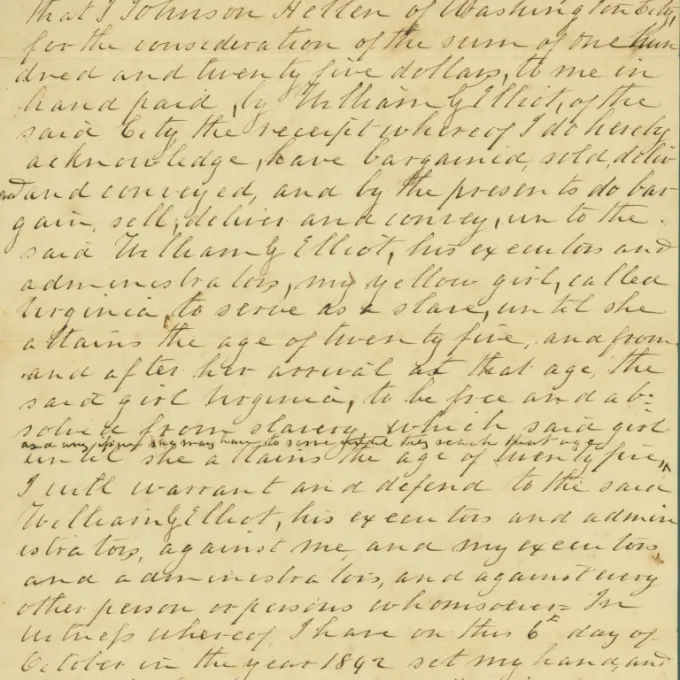 that I Johnson Hellen of Washington City,
for the consideration of the sum of one hun
dred and twenty five dollars, to me in
hand paid, by William G Elliot, of the
said City the receipt whereof I do hereby
acknowledge, have bargained, sold, deliv
ered and conveyed, and by the presents do bar
gain, sell, deliver and convey, un to the
said William G Elliot, his executors and
administrators, my yellow girl, called
Virginia, to serve as a slave, until she
attains the age of twenty five, and from
and after her arrival at that age, the
said girl Virginia, to be free and ab=
solved from slavery which said girl
and any issue she may have to serve until they reach that age
until she attains the age of twenty five,
I will warrant and defend to the said
William G Elliot, his executors and admin
istrators, against me and my executors
and administrators, and against every
other person or persons whomsoever In
witness whereof, I have on this 6th day of
October in the year 1842 set my hand, and